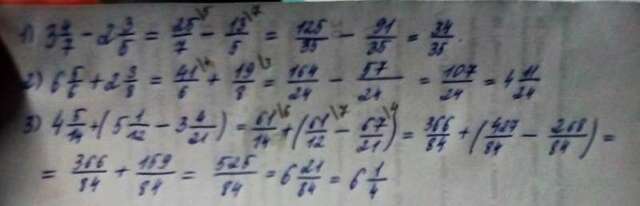 1) 3 4/7 - 2 3/5 = 25/7 \5 - 13/5 \7 = 125/35 - 91/35 = 34/35.
2) 6 5/6 + 2 3/8 = 41/6 \4 + 19/8 \3 = 164/24 - 57/24 = 107/24 = 4 11/24
3) 4 5/14 + (5 1/12 - 3 4/21) = 61/14 \6 + (61/12 \7 - 67/21 \4) = 366/84 + (427/84 - 268/84) =
= 366/84 + 159/84 = 525/84 = 6 21/84 = 6 1/4